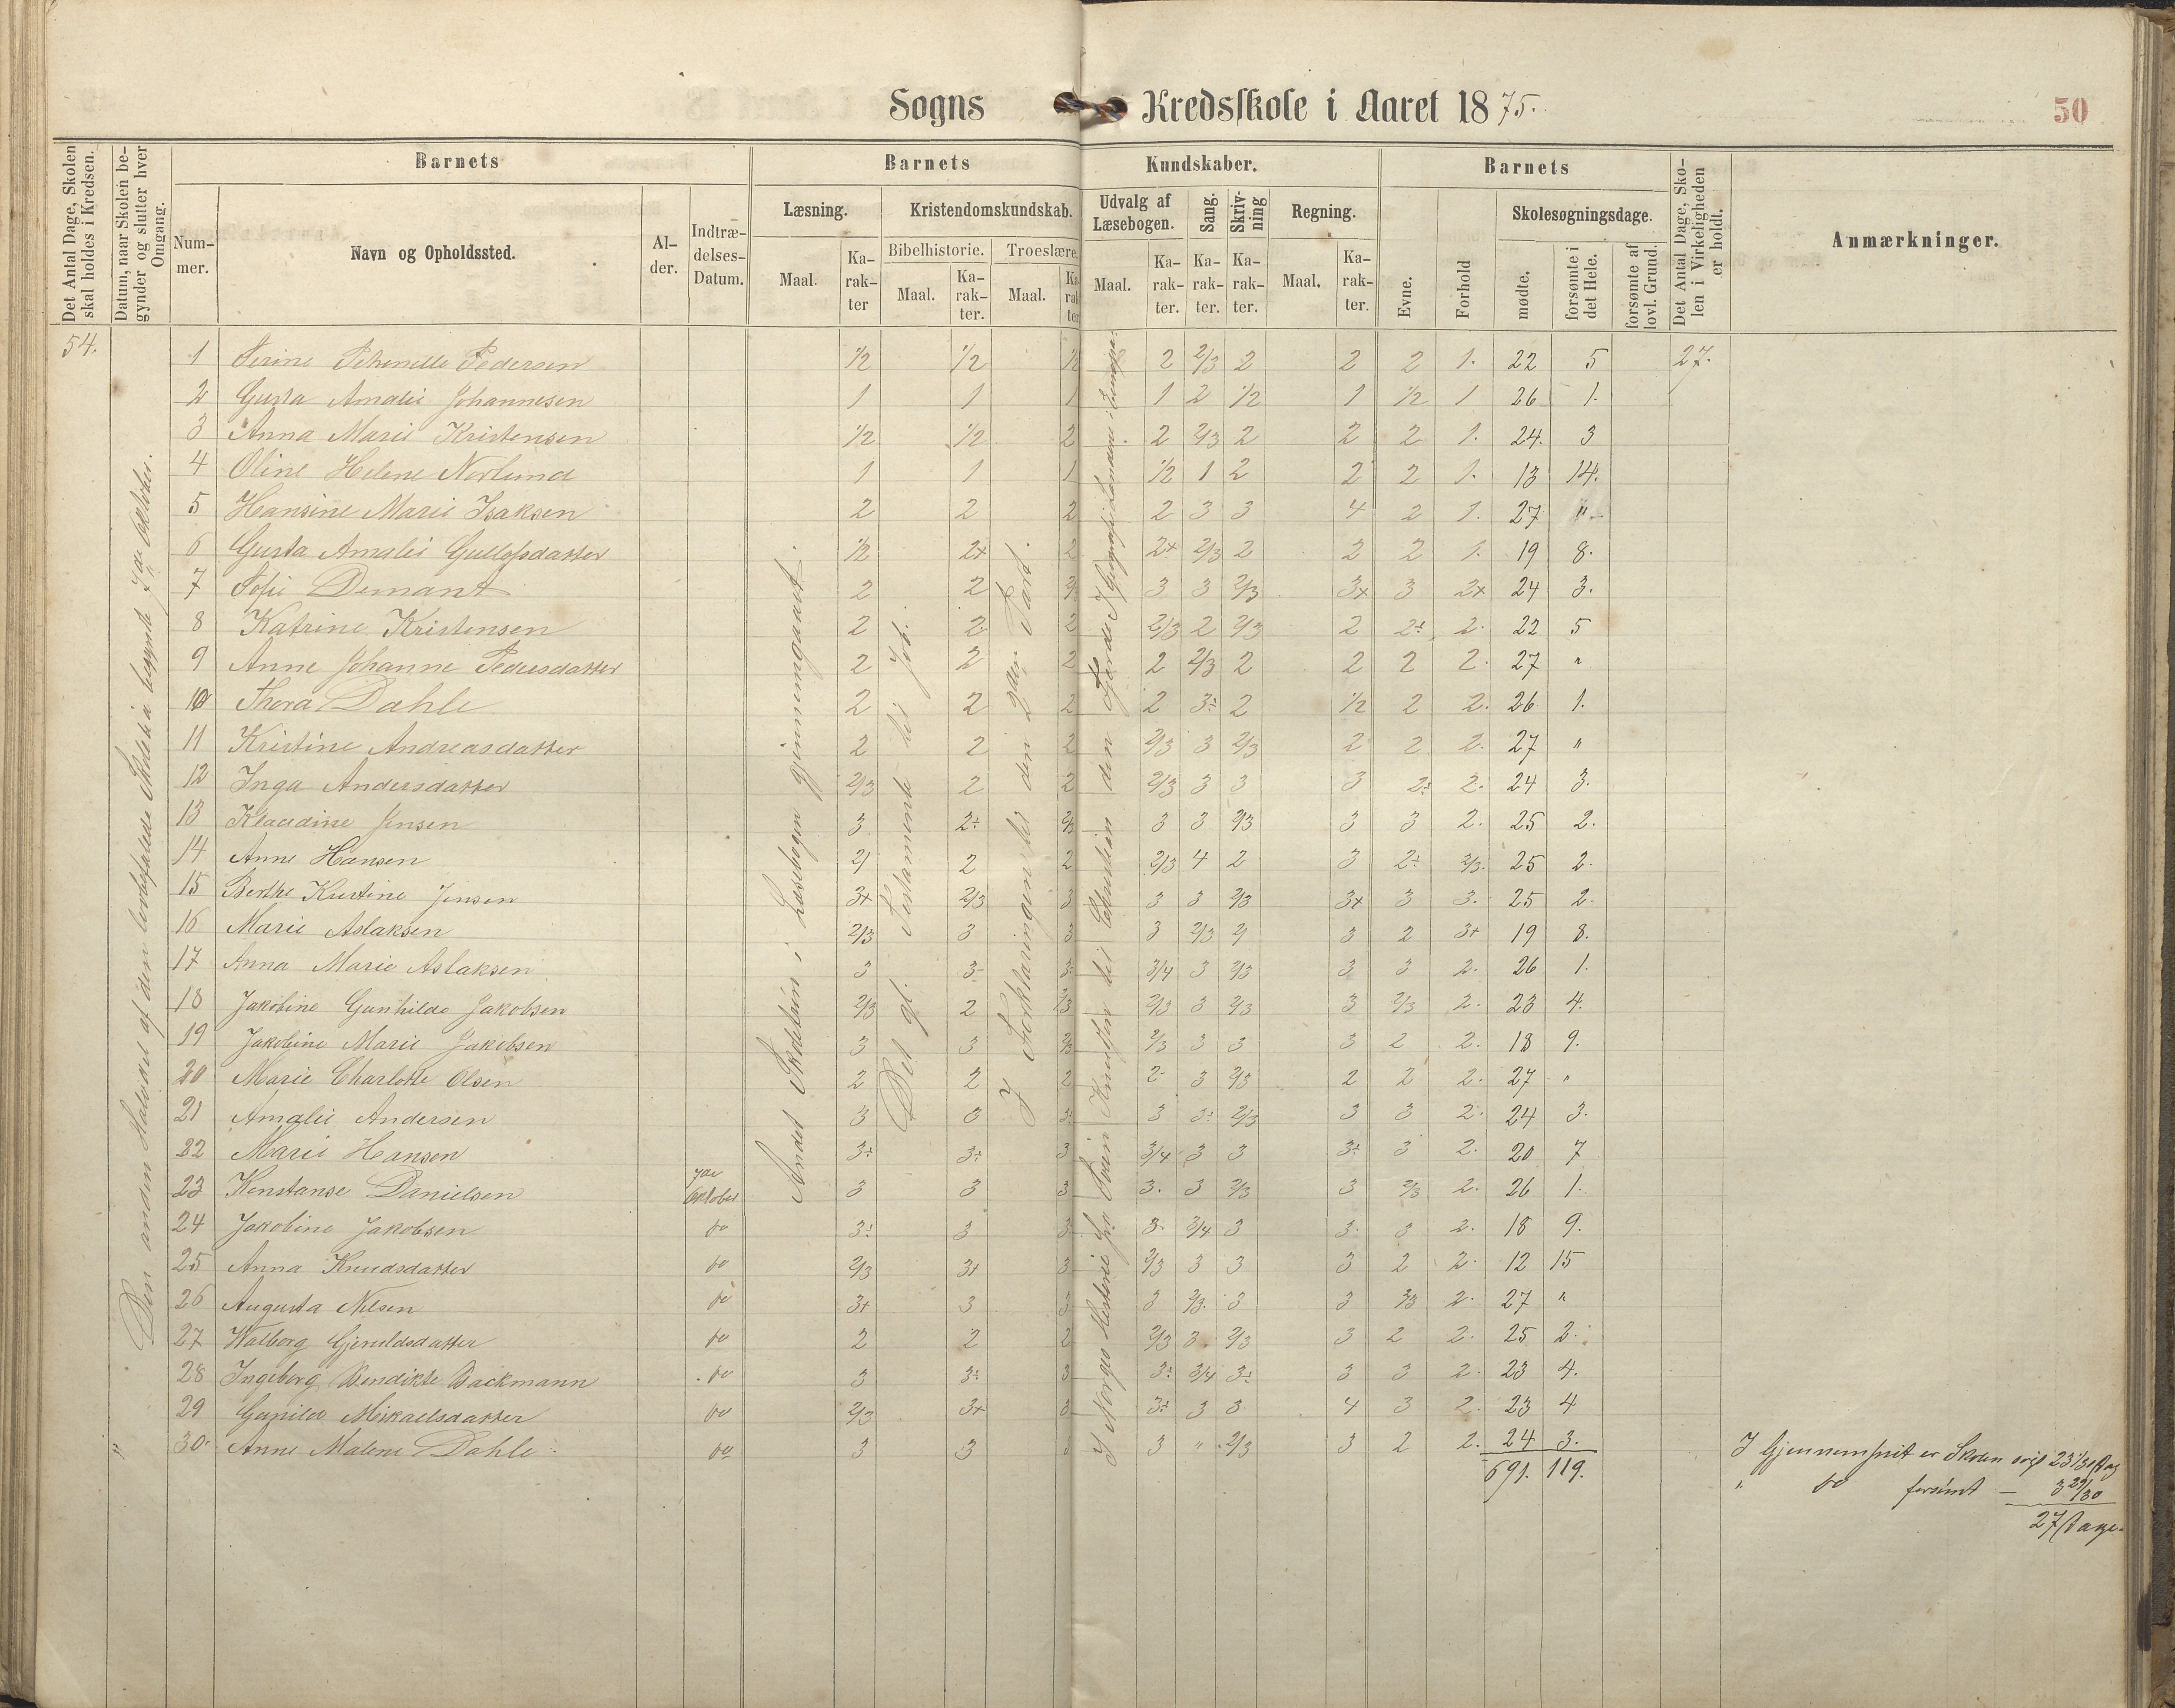 Sogns Kredsskole i Aaret 1875. 50
Det Antal Dage, Skolen skal holdes i Kredsen.
Datum, naar Skolen begynder og slutter hver Omgang.
Barnets
Nummer.
Navn og Opholdssted.
Alder.
Indtrædelses-Datum.
Barnets Kundskaber.
Læsning.
Maal.
Karakter
Kristendomskundskab.
Bibelhistorie.
Maal.
Karakter.
Troeslære.
Maal.
Karakter
Udvalg af Læsebogen.
Maal.
Karakter.
Sang.
Karakter.
Skrivning
Karakter.
Regning.
Maal.
Karakter.
Barnets
Evne.
Forhold
Skolesøgningsdage.
mødte.
forsømte i det Hele.
forsømte af lovl. Grund.
Det Antal Dage, Skolen i Virkeligheden er holdt.
Anmærkninger.
54.
Den anden Halvdel af den
begyndt 7de Oktober.
Andet Skoletrin i Læsebogen gjennemgaaet.
Det gl. Testamente til Job.
I Forklaringen til den 2den Part.
1 Serine Pedersen 1/2 1/2 1/2 2 2/3 2 2 2 1. 22 5 27.
2 Gusta Amalie Johannesen 1 1 1 1 2 1/2 1 1/2 1 26 1.
3 Anna Marie Kristensen 1/2 1/2 2 2 2/3 2 2 2 1. 24. 3
4 Oline Helene Norlund 1 1 1 1/2 1 2 2 2 1. 13 14.
5 Hansine Marie Isaksen 2 2 2 2 3 3 4 2 1. 27 "
6 Gusta Amalie Gullofsdatter 1/2 2+ 2 2+ 2/3 2 2 2 1. 19 8.
7 Sofie Demant 2 2 2/ 3 3 2/3 3+ 3 2+ 24 3.
8 Katrine Kristensen 2 2 2 2/3 2 2/3 2 2÷ 2. 22 5
9 Anne Johanne Pedersdatter 2 2 2 2 2/3 2 2 2 2. 27 "
10 Thora Dahle 2 2 2 2 3÷ 2 1/2 2 2. 26 1.
11 Kristine Andreasdatter 2 2 2 2/3 3 2/3 2 2 2. 27 "
12 Inga Andersdatter 2/3 2 2 2/3 3 3 3 2÷ 2. 24 3.
13 Klaudine Jensen 3 2÷ 2/3 3 3 2/3 3 3 2. 25 2.
14 Anne Hansen 2/ 2 2 2/3 4 2 3 2÷ 2/3. 25 2.
15 Berthe Kristine Jensen 3+ 2/3 3 3 3 2/3 3+ 3 3. 25 2
16 Marie Aslaksen 2/3 3 3 3 2/3 2/ 3 2 3+ 19 8.
17 Anna Marie Aslaksen 3 3- 3- 3/4 3 2/3 3 3 2. 26 1.
18 Jakobine Gunhilde Jakobsen 2/3 2 2/3 2/3 3 2/3 3 2/3 2. 23 4.
19 Jakobine Marie Jakobsen 3 3 2/3 2/3 3 3 3 2 2. 18 9.
20 Marie Charlotte Olsen 2 2 2 2- 3 2/3 2 2 2. 27 "
21 Amalie Andersen 3 3 3÷ 3 3÷ 2/3 3 3 2. 24 3.
22 Marie Hansen 3÷ 3÷ 3 3/4 3 3 3÷ 3 2. 20 7
23 Konstanse Danielsen 7de Oktober 3 3 3 3. 3 2/3 3 2/3 2. 26 1.
24 Jakobine Jakobsen do 3÷ 3 3 3 3/4 3 3 3 2. 18 9.
25 Anna Knudsdatter do 2/3 3+ 3 2/3 3 3 3 2 2. 12 15
26 Augusta Nilsen do 3+ 3 3 3 2/3. 3 3 2/3 2. 27 "
27 Walborg Gjeruldsdatter do 2 2 2 2/3 3 2/3 3 2 2. 25 2.
28 Ingeborg Bendikte Backmann do 3 3÷ 3 3÷ 3/4 3÷ 3 3 2. 23 4.
29 Gunild Mikaelsdatter do 2/3 3+ 3 3÷ 3 3 4 3 2. 23 4
30. Anne Malene Dahle do 3 3 3 3 " 2/3 3 2 2. 24 3.
691. 119.
I Gjennemsnit er Skolen søgt 23 1/30 Dag
" do forsømt — 3 29/30
27 Dage.